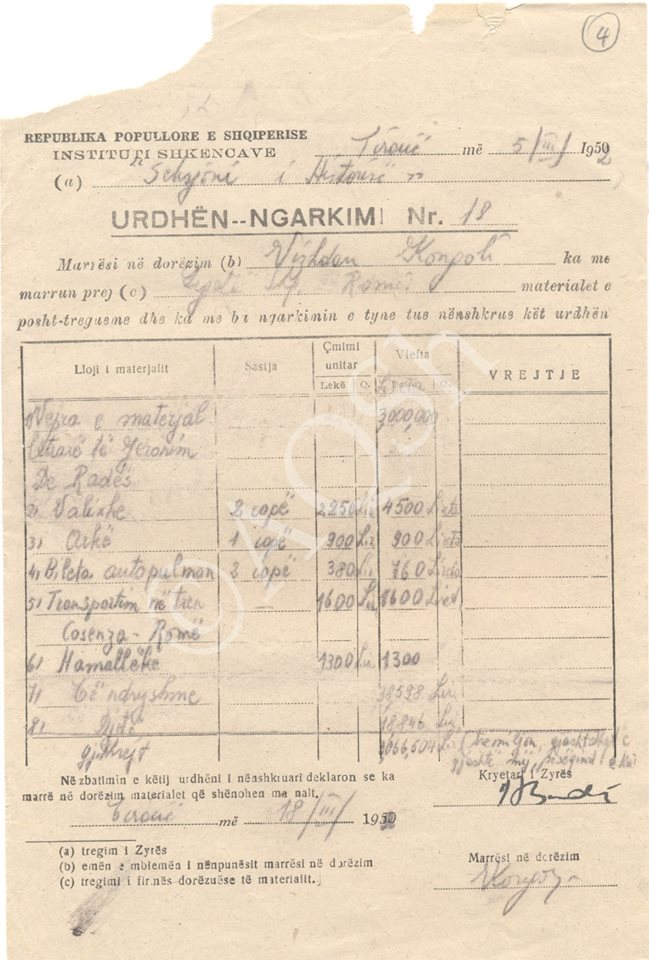 4
REPUBLIKA POPULLORE E SHQIPERISE
INSTITUTI SHKENCAVE Tiranë më 5/III/1952
(a) "Seksjoni i Historisë"
URDHËN--NGARKIMI Nr. 18
Marrësi në dorëzim (b) Vizhdan ka me
marrun prej (c) Romë materialet e
posht-tregueme dhe ka me bë ngarkimin e tyne tue nënshkrue kët urdhën
Lloji i materjalit Sastja Çmimi unitar Vlefta VREJTJE
Lekë Q. Q.
1) Vepra e materjal 3000,000
letrare të Jeronim
De Radës
2) Valixhe 2 copë 2250 Lir 4500 Lireta
3) Arkë 1 copë 900 Lir 900 Lireta
4) Bileta autopulman 2 copë 380 Lir 760 Lireta
5) Transportim në tren 1600 Lir 1600 Liret
Cosenza - Romë
6) Hamallëke 1300 Lir 1300
7) Të ndryshme 38598 Lir
8) 18.846 Lir
gjithsejt 3066,504 Lir (tremiljon, gjashtëdhjetë e
gjashtë mijë, pesëqind e
Në zbatimin e këtij urdhëni i nënshkruari deklaron se ka
marrë në dorëzim materialet që shënohen ma nalt.
Kryetari i Zyrës
Tiranë më 18/III/1952
(a) tregim i Zyrës
(b) emën e mblemën i nënpunësit marrësi në dorëzim
(c) tregimi i firmës dorëzuese të materialit.
Marrësi në dorëzim
© AQSh